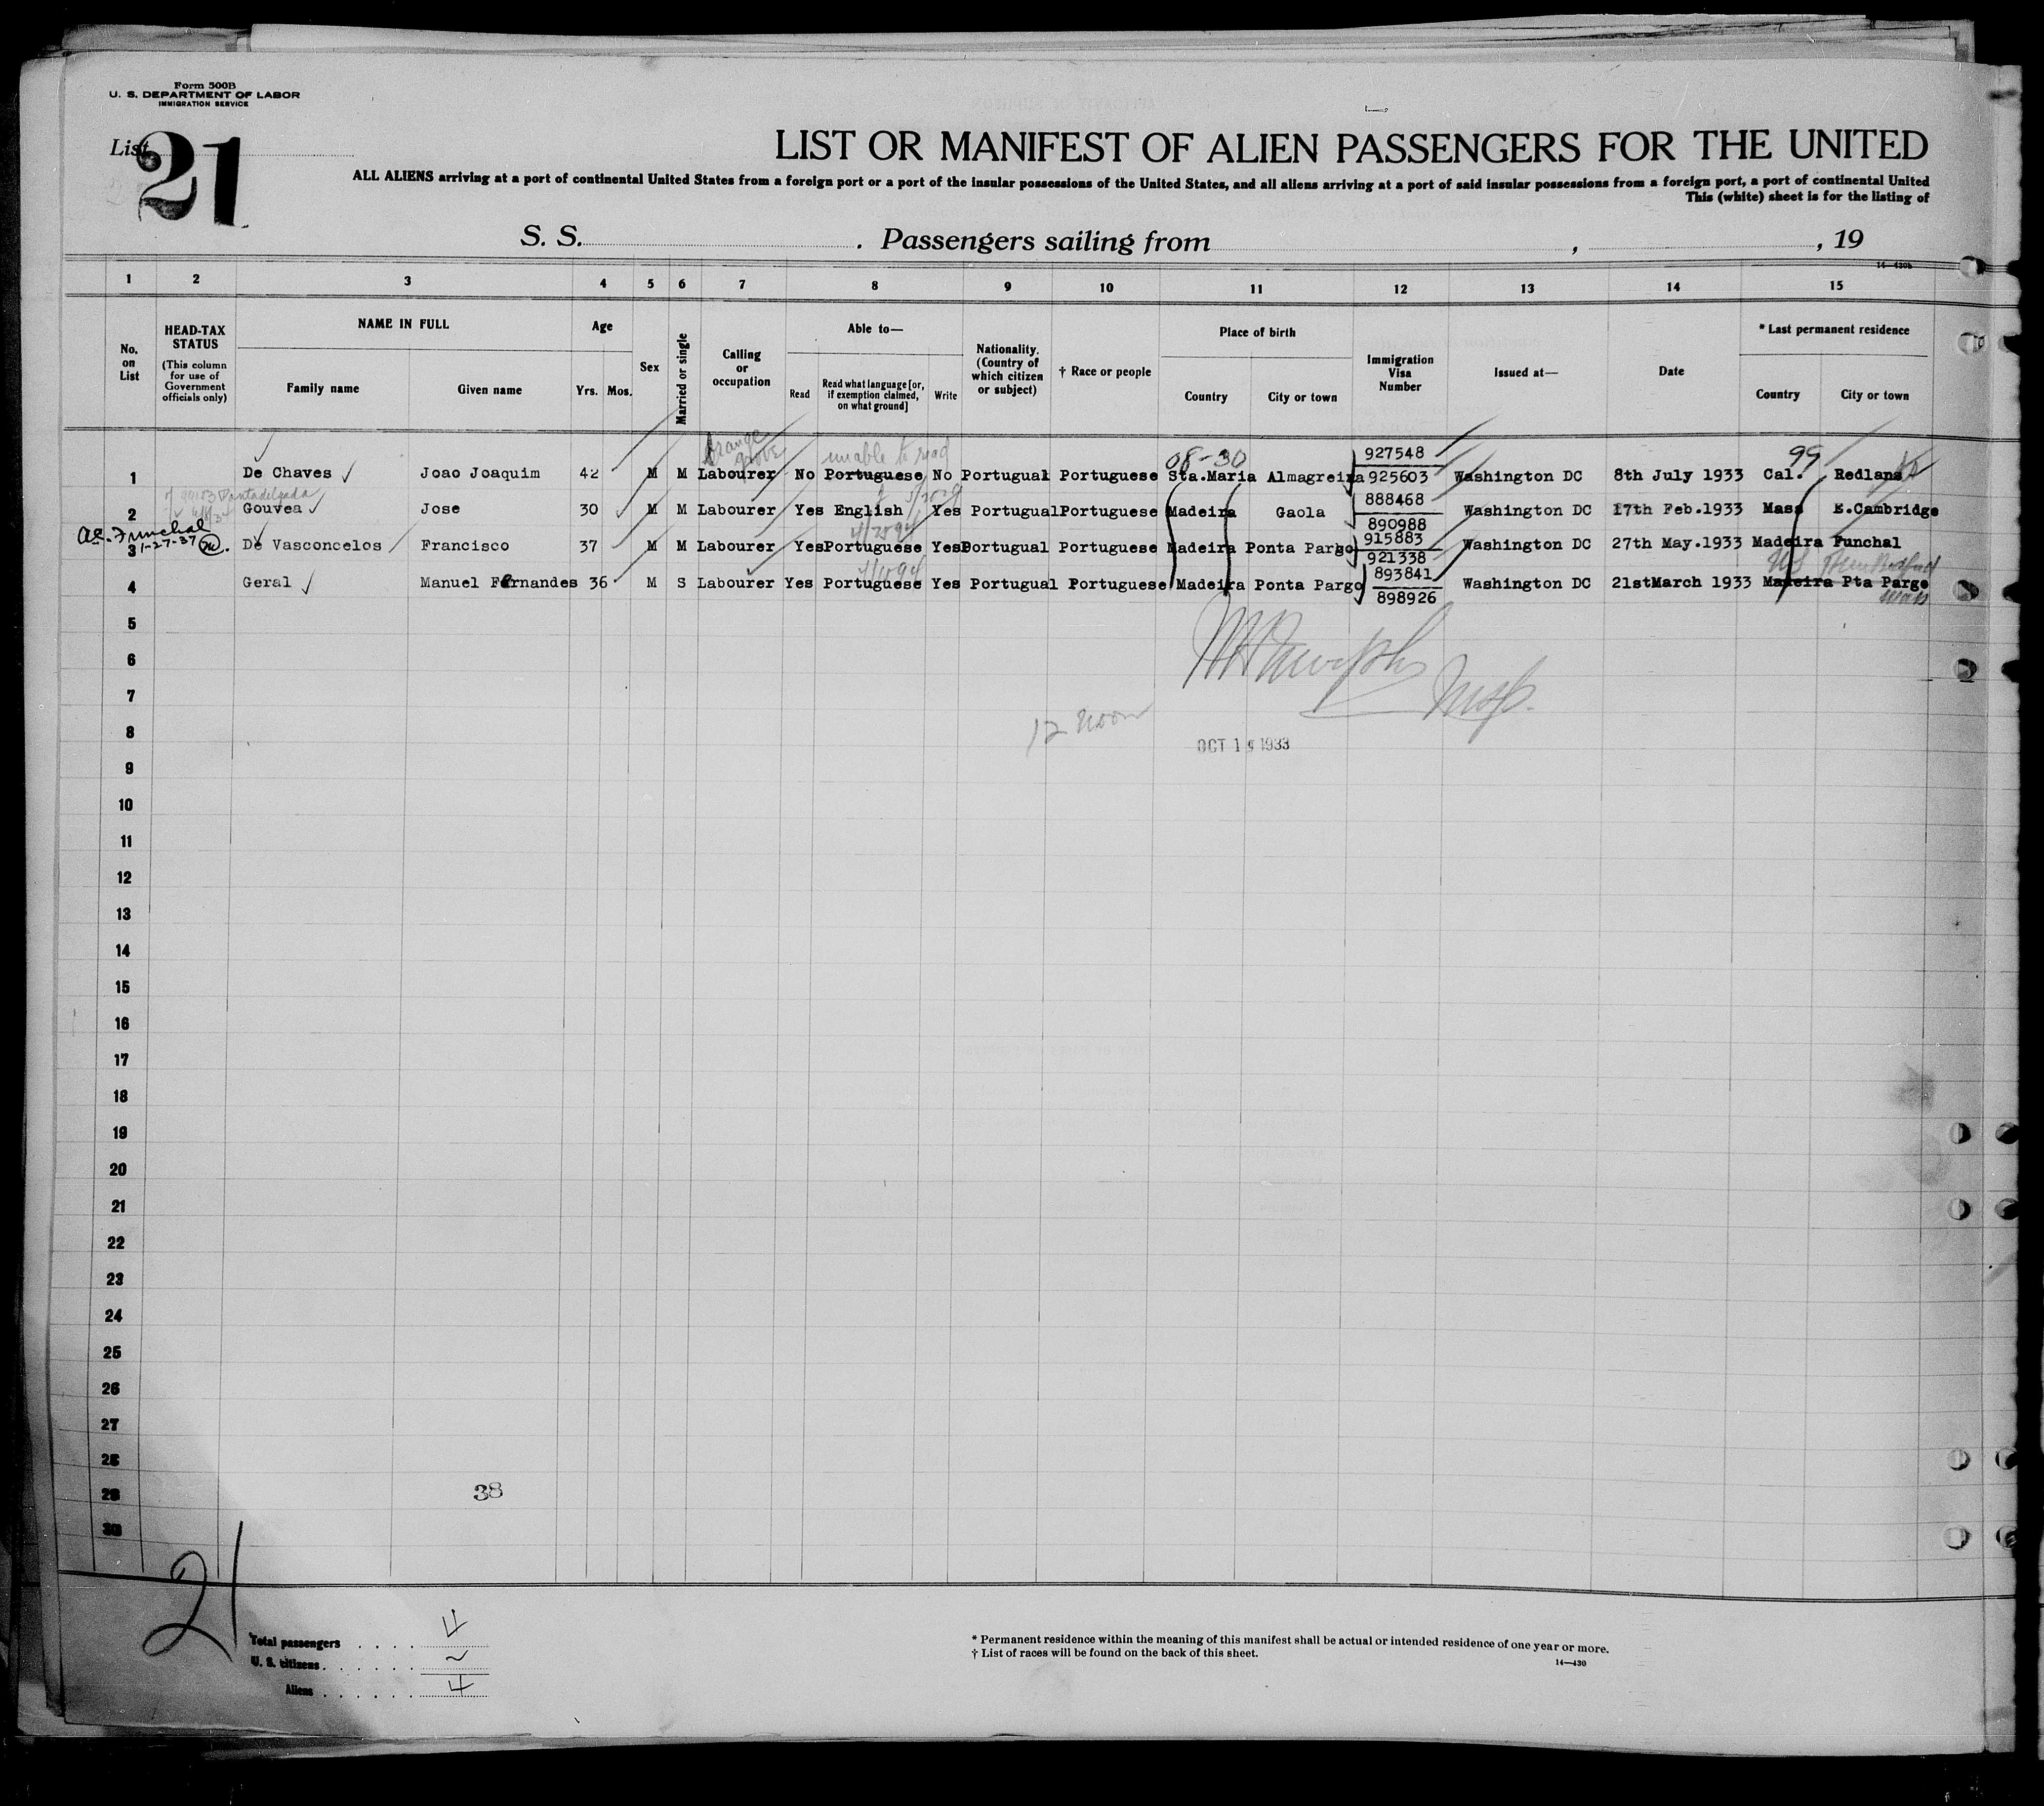 Form 500B
U. S. DEPARTMENT OF LABOR
IMMIGRATION SERVICE
List 21
LIST OR MANIFEST OF ALIEN PASSENGERS FOR THE UNITED
ALL ALIENS arriving at a port of continental United States from a foreign port or a port of the insular possessions of the United States, and all aliens arriving at a port of said insular possessions from a foreign port, a port of continental United
This (white) sheet is for the listing of
S. S. . Passengers sailing from , , 19
14—430b
1 2 3 4 5 6 7 8 9 10 11 12 13 14 15
No. on List
HEAD-TAX STATUS (This column for use of Government officials only)
NAME IN FULL Family name Given name
Age Yrs. Mos.
Sex
Married or single
Calling or occupation
Able to— Read Read what language [or, if exemption claimed, on what ground] Write
Nationality. (Country of which citizen or subject)
† Race or people
Place of birth Country City or town
Immigration Visa Number
Issued at—
Date
* Last permanent residence Country City or town
orange grove unable to read 08-30 927548 99
1 De Chaves Joao Joaquim 42 M M Labourer No Portuguese No Portugual Portuguese Sta.Maria Almagreira 925603 Washington DC 8th July 1933 Cal. Redlans
Pontadelgada 888468
2 Gouvea Jose 30 M M Labourer Yes English Yes Portugual Portuguese Madeira Gaola 890988 Washington DC 17th Feb.1933 Mass E.Cambridge
Funchal 1-27-37 915883
3 De Vasconcelos Francisco 37 M M Labourer Yes Portuguese Yes Portugual Portuguese Madeira Ponta Pargo 921338 Washington DC 27th May.1933 Madeira Funchal
893841 US New Bedford
4 Geral Manuel Fernandes 36 M S Labourer Yes Portuguese Yes Portugual Portuguese Madeira Ponta Pargo 898926 Washington DC 21stMarch 1933 Madeira Pta Pargo
Mass
5
6
7
Insp.
12 noon
8
OCT 1 1933
9
10
11
12
13
14
15
16
17
18
19
20
21
22
23
24
25
26
27
28
29
38
30
21
Total passengers 4
U. S. citizens
Aliens 4
* Permanent residence within the meaning of this manifest shall be actual or intended residence of one year or more.
† List of races will be found on the back of this sheet.
14—430